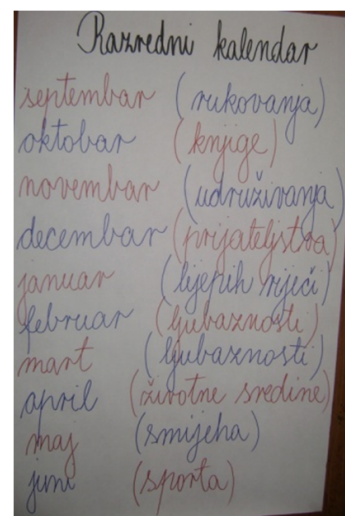 Razredni kalendar
septembar (rukovanja)
oktobar (knjige)
novembar (udruživanja
decembar (prijateljstva)
januar (lijepih riječi)
februar (ljubaznosti)
mart (ljubaznosti)
april (životne sredine)
maj (smijeha)
juni (sporta)